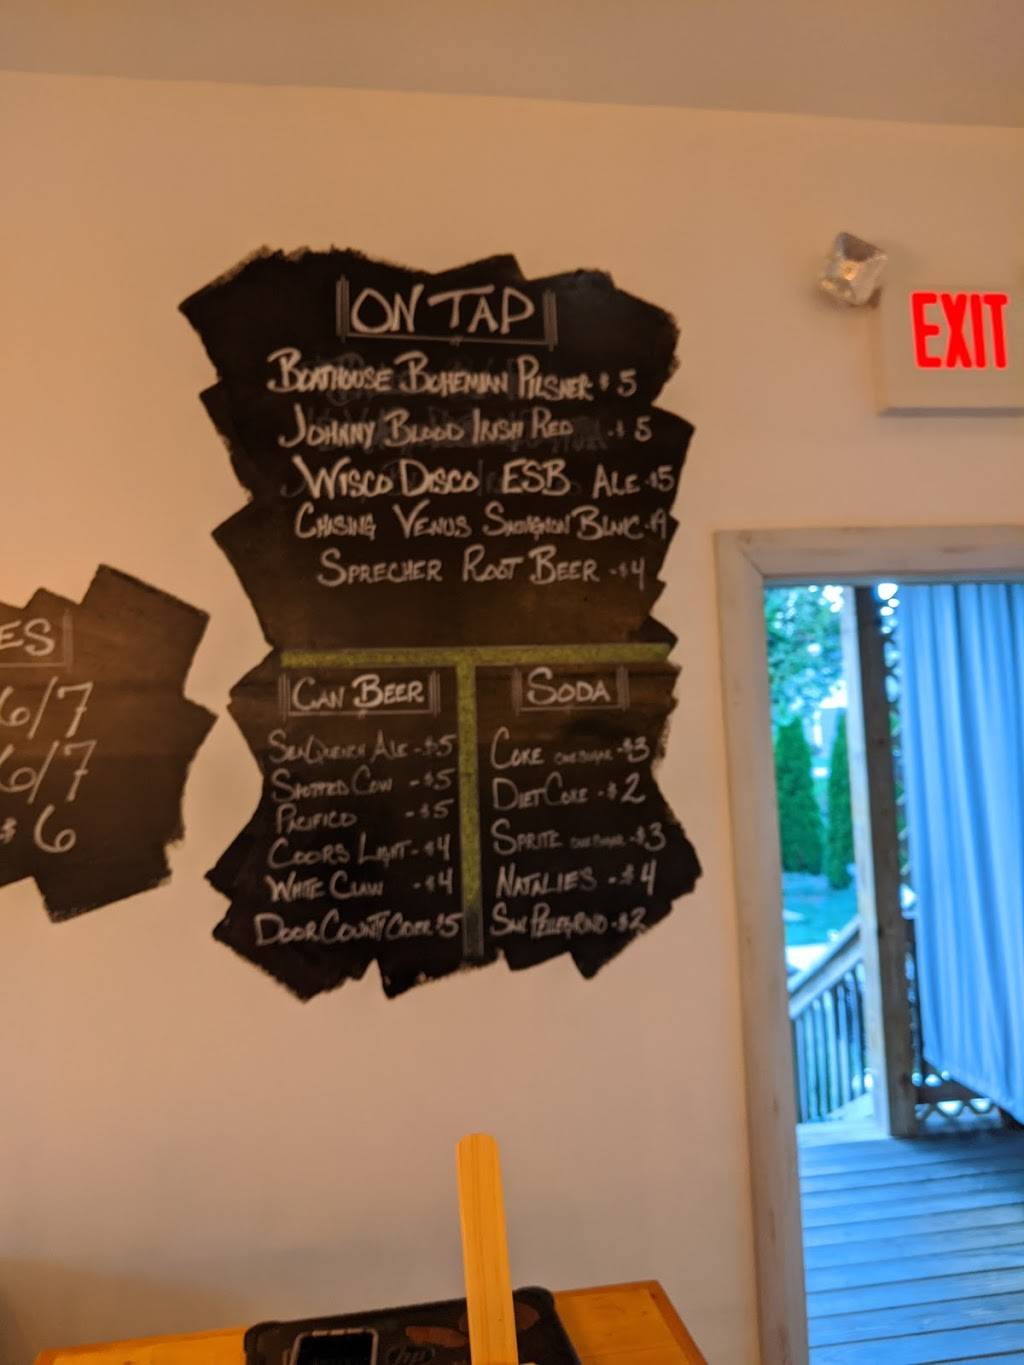 ON TAP
BOATHOUSE BOHEMIAN PILSNER $5
JOHNNY BLOOD IRISH RED -$5
WISCO DISCO ESB ALE -$5
CHASING VENUS SAUVIGNON BLNC -$9
SPRECHER ROOT BEER -$4
CAN BEER
SEAQUEICH ALE -$5
SPOTTED COW -$5
PACIFICO -$5
COORS LIGHT -$4
WHITE CLAW -$4
DOOR COUNTY CIDER $5
SODA
COKE CANE SUGAR -$3
DIET COKE -$2
SPRITE CANE SUGAR -$3
NATALIES -$4
SAN PELLEGRINO -$2
ES
6/7
6/7
$6
EXIT
hp